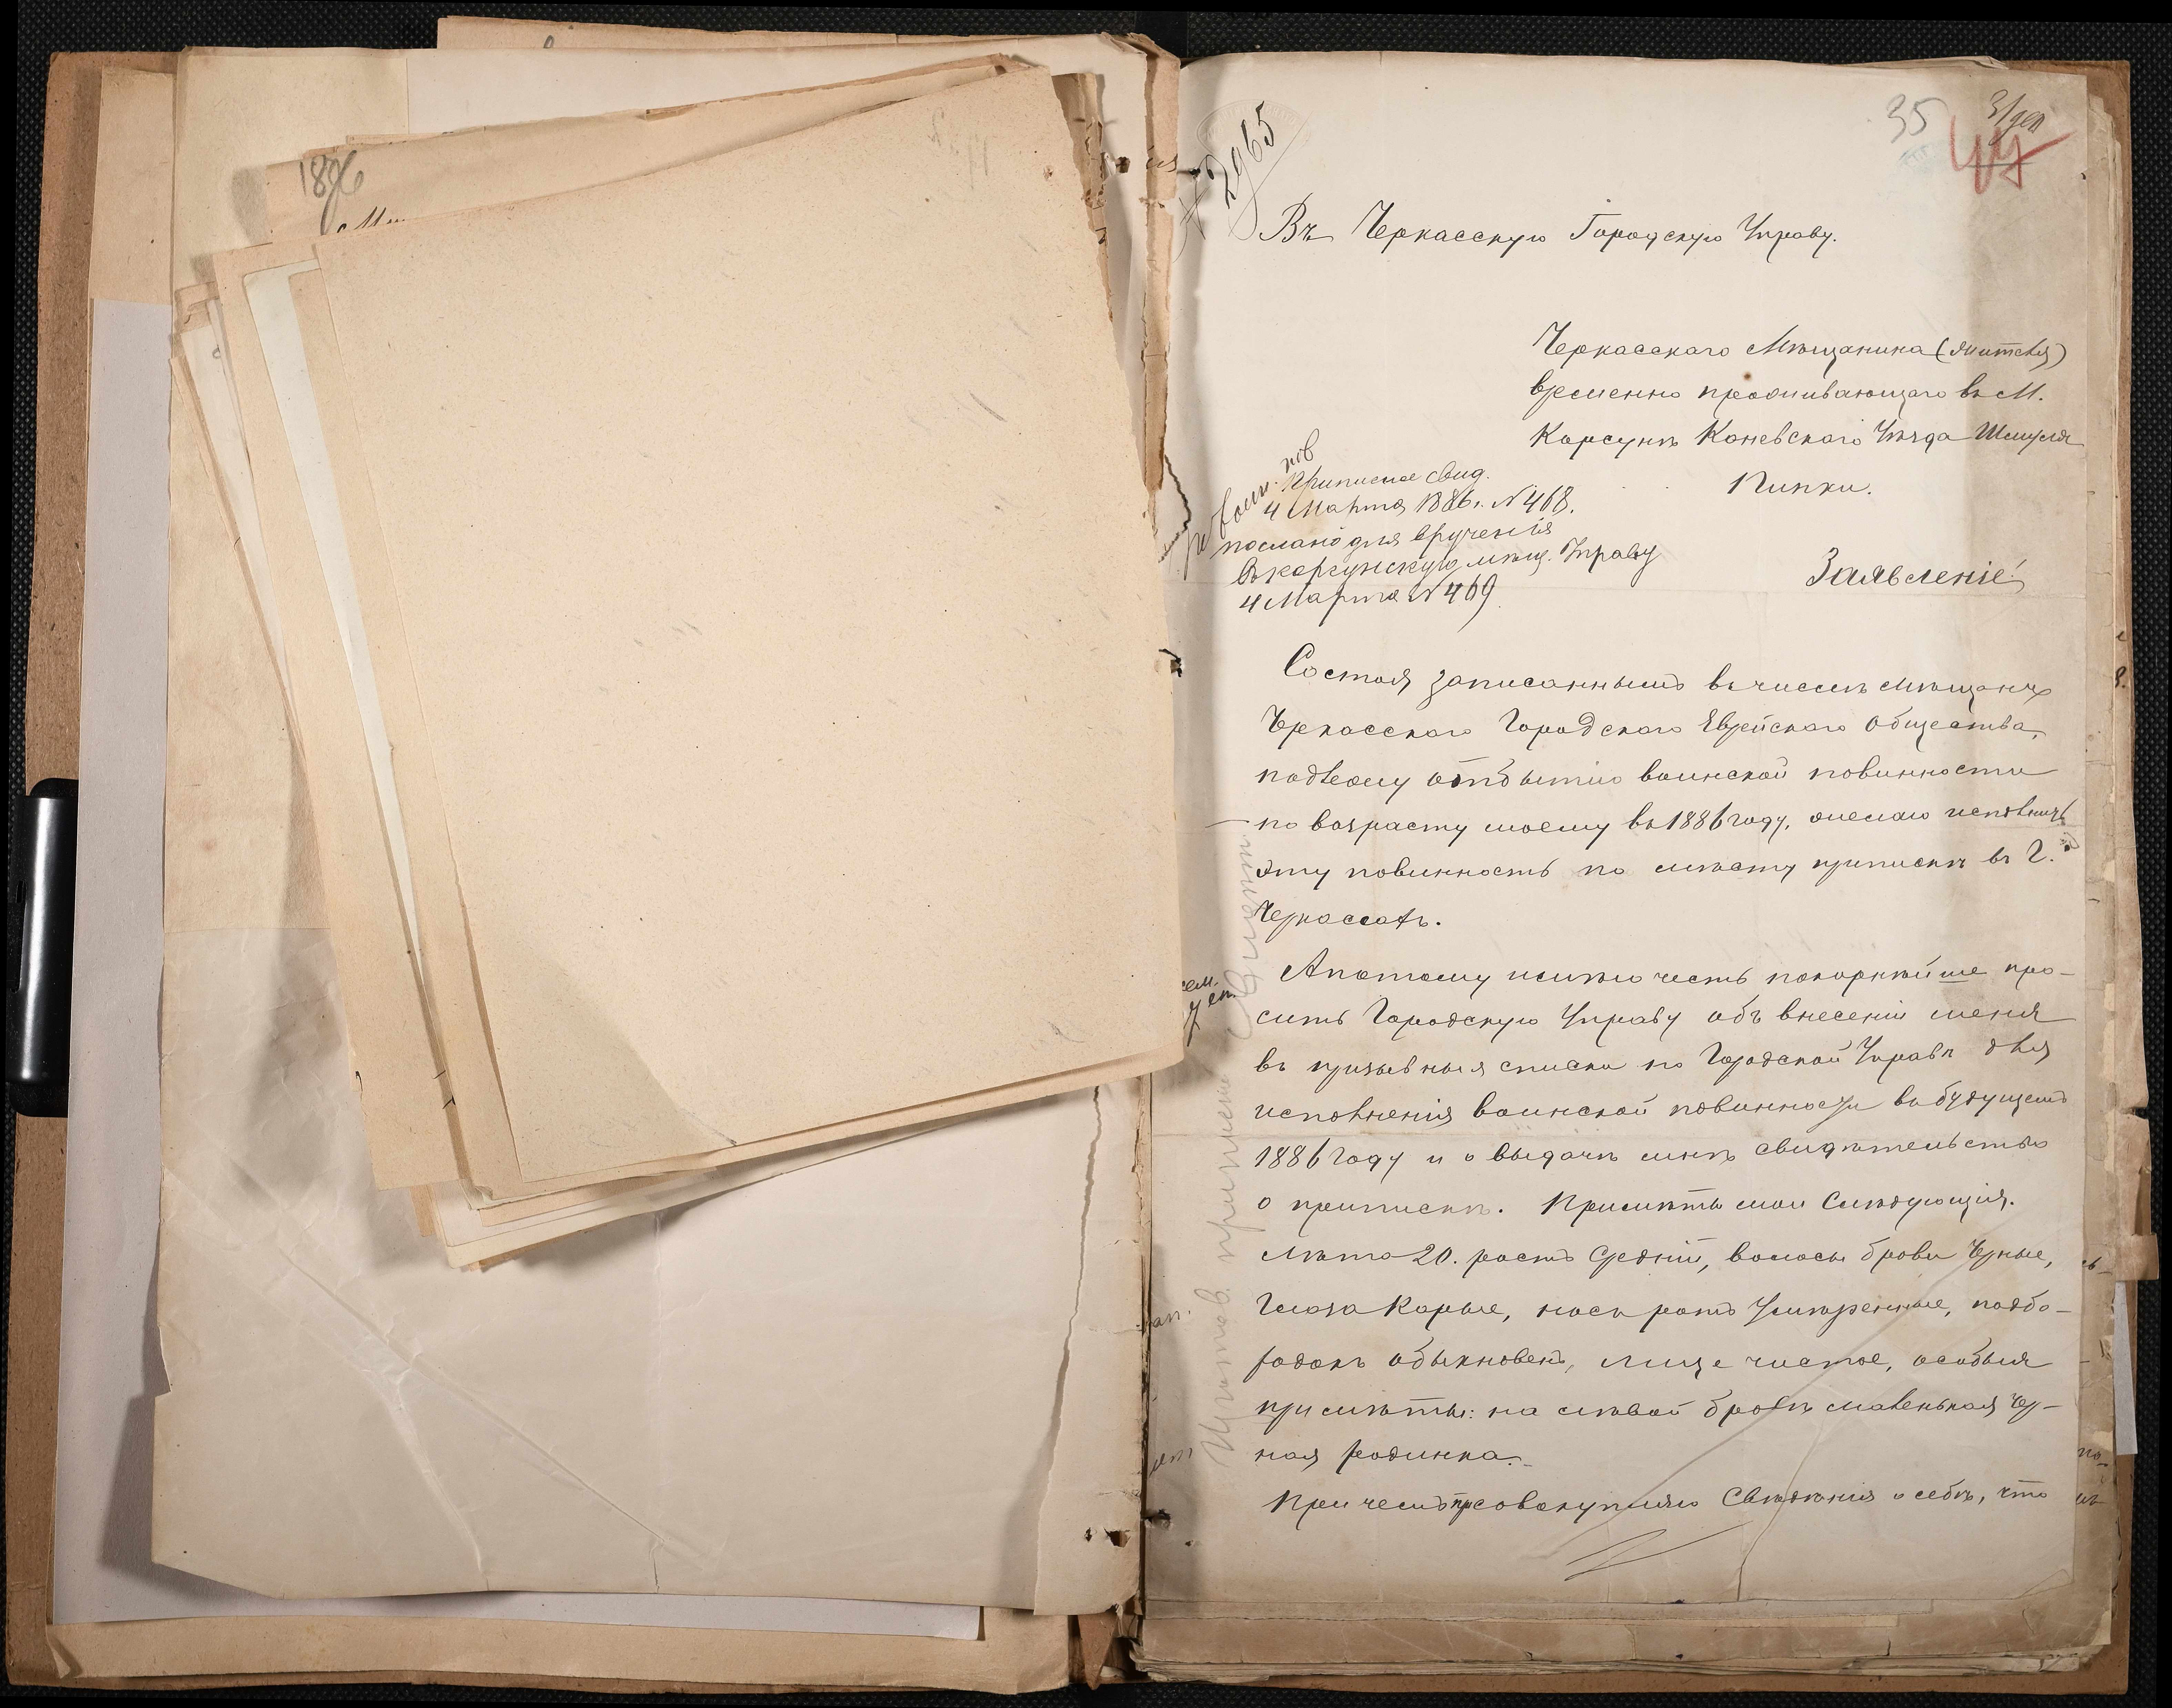 1886
№ 2965
35
3/дек
44
Въ Черкасскую Городскую Управу.
Черкасскаго Мѣщанина (жителя)
временно проживающаго въ М.
Корсунѣ Каневскаго Уѣзда Шмуля
Пипки.
Приписное свид.
4 Марта 1886 г. № 468.
послано для врученія
въ корсунскую мѣщ. Управу
4 Марта № 469
Заявленіе
Состоя записаннымъ въ числѣ мѣщанъ
Черкасскаго Городскаго Еврейскаго Общества,
подлежу отбытію воинской повинности
по возрасту моему въ 1886 году, желаю исполнить
эту повинность по мѣсту приписки въ Г.
Черкассахъ.
А потому имѣю честь покорнѣйше про-
сить Городскую Управу объ внесеніи меня
въ призывныя списки по Городской Управѣ для
исполненія воинской повинности въ будущемъ
1886 году и о выдачѣ мнѣ свидѣтельство
о припискѣ. Примѣты мои Слѣдующія.
Лѣта 20. ростъ Средній, волосы брови Черные,
Глаза Карые, носъ ротъ Умѣренные, подбо-
родокъ обыкновенъ, лице чистое, особыя
примѣты: на лѣвой бровѣ маленькая Чер-
ная родинка.
При чемъ присовокупляю Свѣдѣнія о себѣ, что